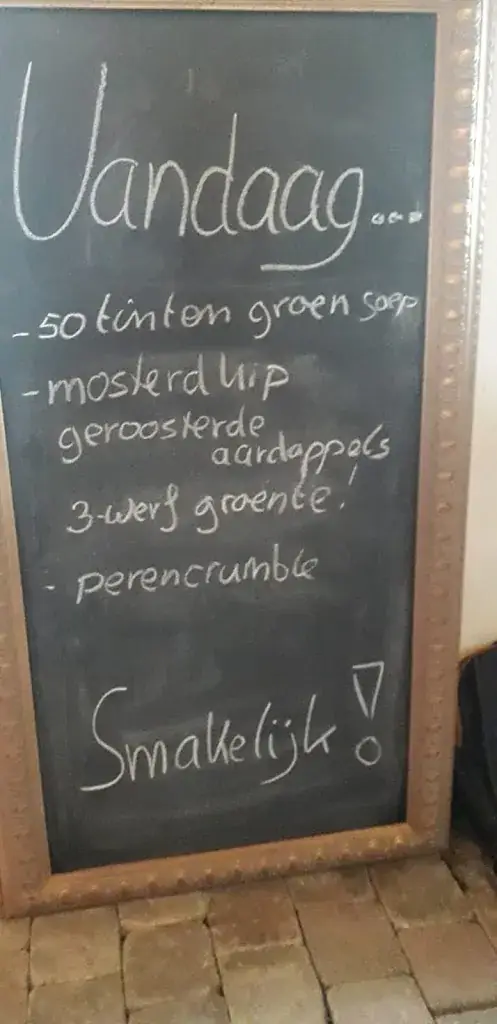 Vandaag....
- 50 tinten groen soep
- mosterd kip
geroosterde
aardappels
3-werf groente!
- perencrumble
Smakelijk!